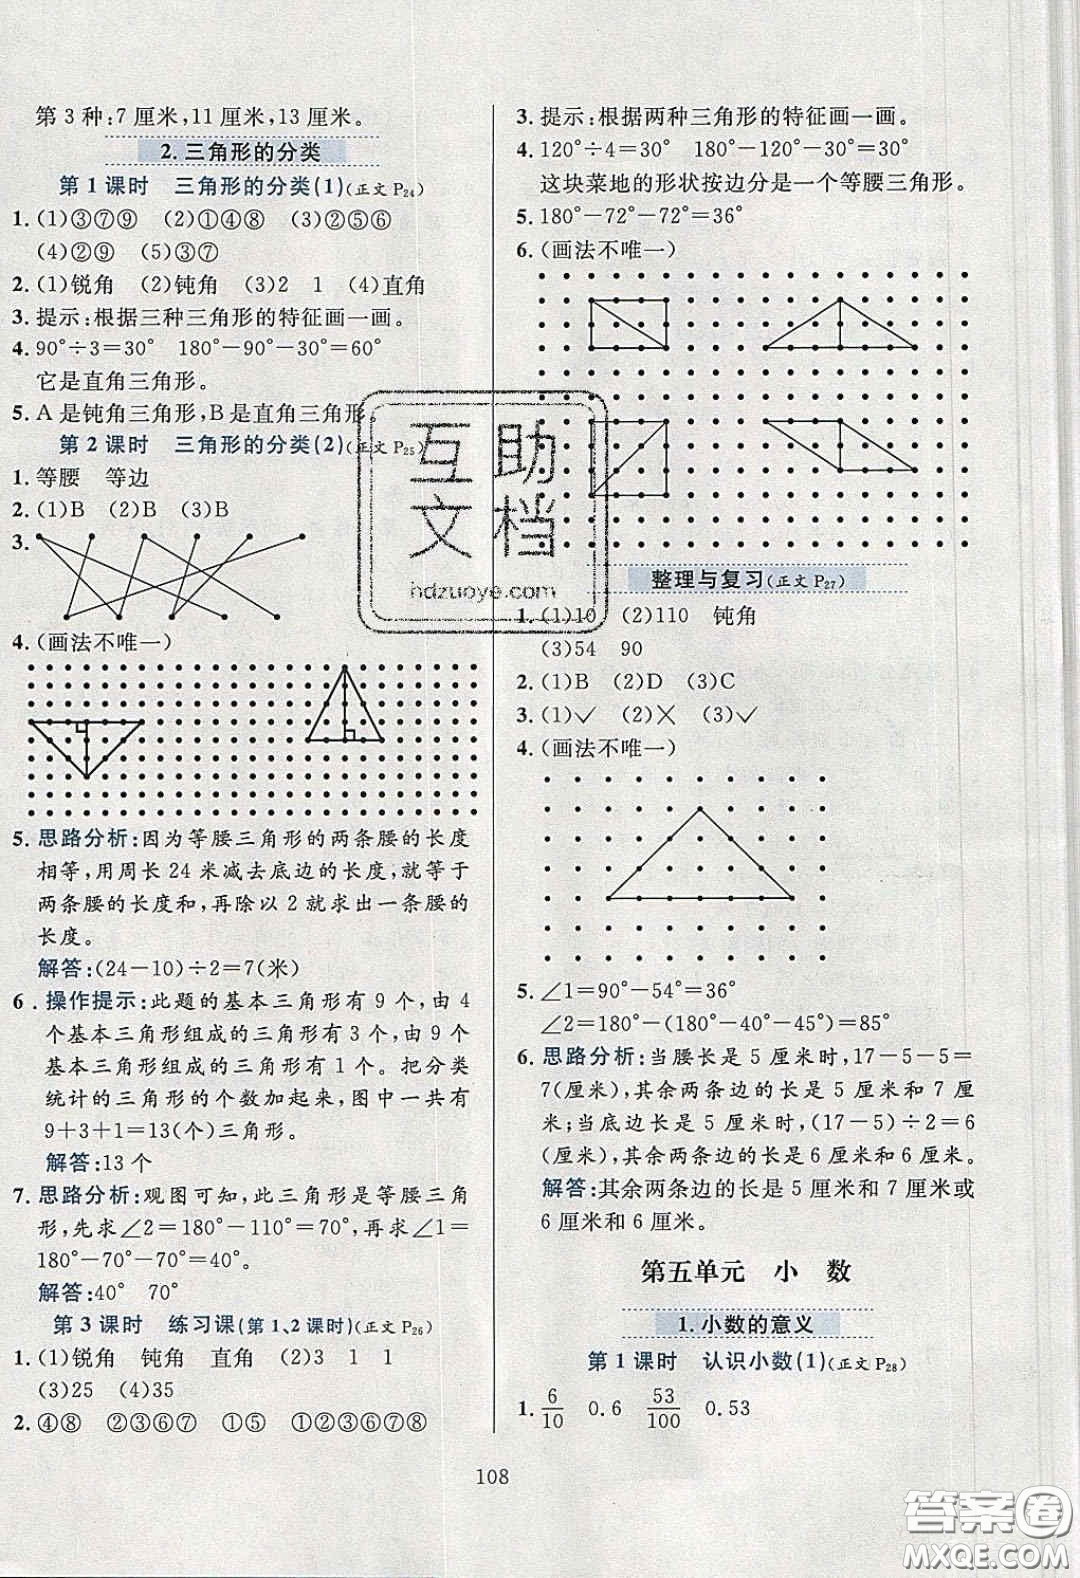 第 3 种:7 厘米,11 厘米,13 厘米。
2.三角形的分类
第 1 课时　三角形的分类(1)(正文 P24)
1. (1)③⑦⑨　(2)①④⑧　(3)②⑤⑥
(4)②⑨　(5)③⑦
2. (1)锐角　(2)钝角　(3)2　1　(4)直角
3. 提示:根据三种三角形的特征画一画。
4. 90°÷3=30°　180°-90°-30°=60°
它是直角三角形。
5. A 是钝角三角形,B 是直角三角形。
第 2 课时　三角形的分类(2)(正文 P25)
1. 等腰　等边
2. (1)B　(2)B　(3)B
3.
4. (画法不唯一)
5. 思路分析:因为等腰三角形的两条腰的长度
相等,用周长 24 米减去底边的长度,就等于
两条腰的长度和,再除以 2 就求出一条腰的
长度。
解答:(24-10)÷2=7(米)
6. 操作提示:此题的基本三角形有 9 个,由 4
个基本三角形组成的三角形有 3 个,由 9 个
基本三角形组成的三角形有 1 个。把分类
统计的三角形的个数加起来,图中一共有
9+3+1=13(个)三角形。
解答:13 个
7. 思路分析:观图可知,此三角形是等腰三角
形,先求∠2=180°-110°=70°,再求∠1=
180°-70°-70°=40°
解答:40°　70°
第 3 课时　练习课(第 1、2 课时)(正文 P26)
1. (1)锐角　钝角　直角　(2)3　1　1
(3)25　(4)35
2. ④⑧　②③⑥⑦　①⑤　①②③⑥⑦⑧
3. 提示:根据两种三角形的特征画一画。
4. 120°÷4=30°　180°-120°-30°=30°
这块菜地的形状按边分是一个等腰三角形。
5. 180°-72°-72°=36°
6. (画法不唯一)
整理与复习(正文 P27)
1. (1)10　(2)110　钝角
(3)54　90
2. (1)B　(2)D　(3)C
3. (1)✓　(2)✕　(3)✓
4. (画法不唯一)
5. ∠1=90°-54°=36°
∠2=180°-(180°-40°-45°)=85°
6. 思路分析:当腰长是 5 厘米时,17-5-5=
7(厘米),其余两条边的长是 5 厘米和 7 厘
米;当底边长是 5 厘米时,(17-5)÷2=6
(厘米),其余两条边的长是 6 厘米和 6 厘米。
解答:其余两条边的长是 5 厘米和 7 厘米或
6 厘米和 6 厘米。
第五单元　小　数
1.小数的意义
第 1 课时　认识小数(1)(正文 P28)
1. 6/10　0.6　53/100　0.53
108
互助
文档
hdzuoye.com
答案圈
MXQE.COM